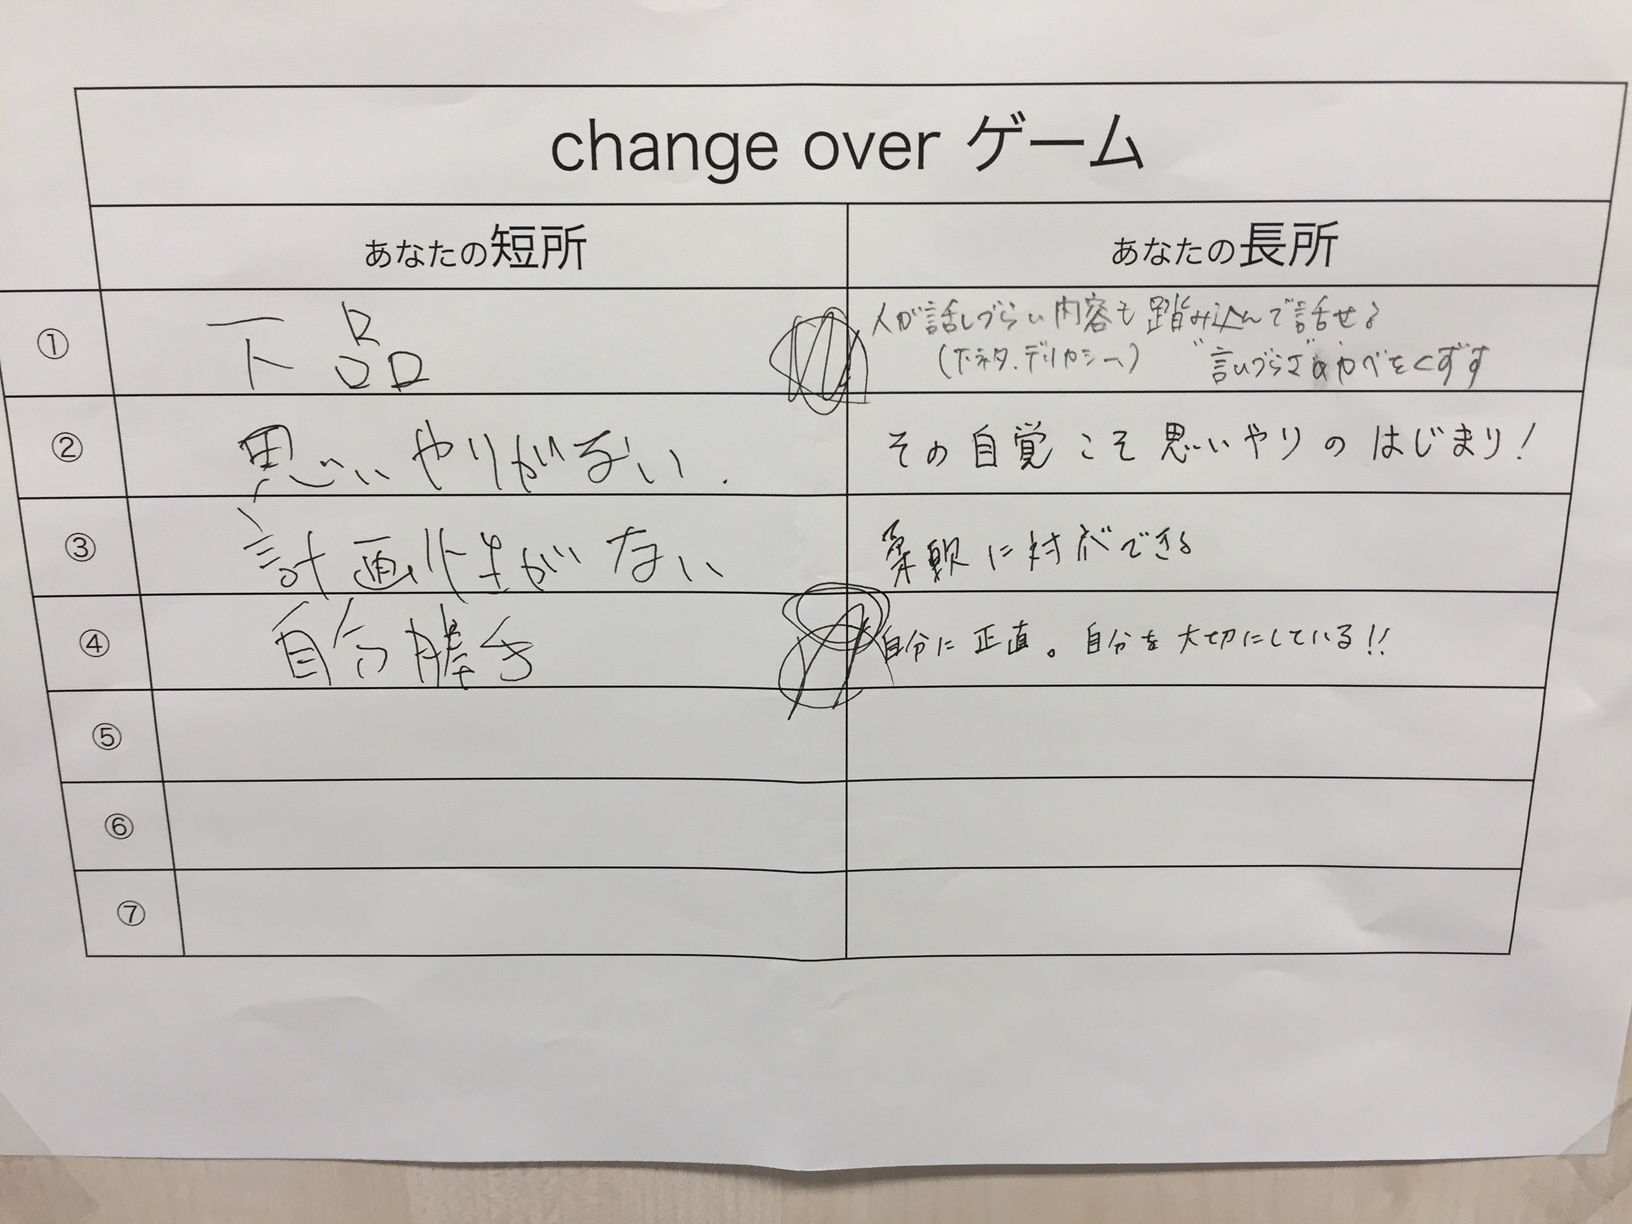 change over ゲーム
あなたの短所 あなたの長所
① 下品 人が話しづらい内容も踏み込んで話せる
(下ネタ.デリカシー) "言いづらさ"のかべをくずす
② 思いやりがない. その自覚こそ思いやりのはじまり!
③ 計画性がない 柔軟に対応できる
④ 自分勝手 自分に正直。自分を大切にしている!!
⑤
⑥
⑦